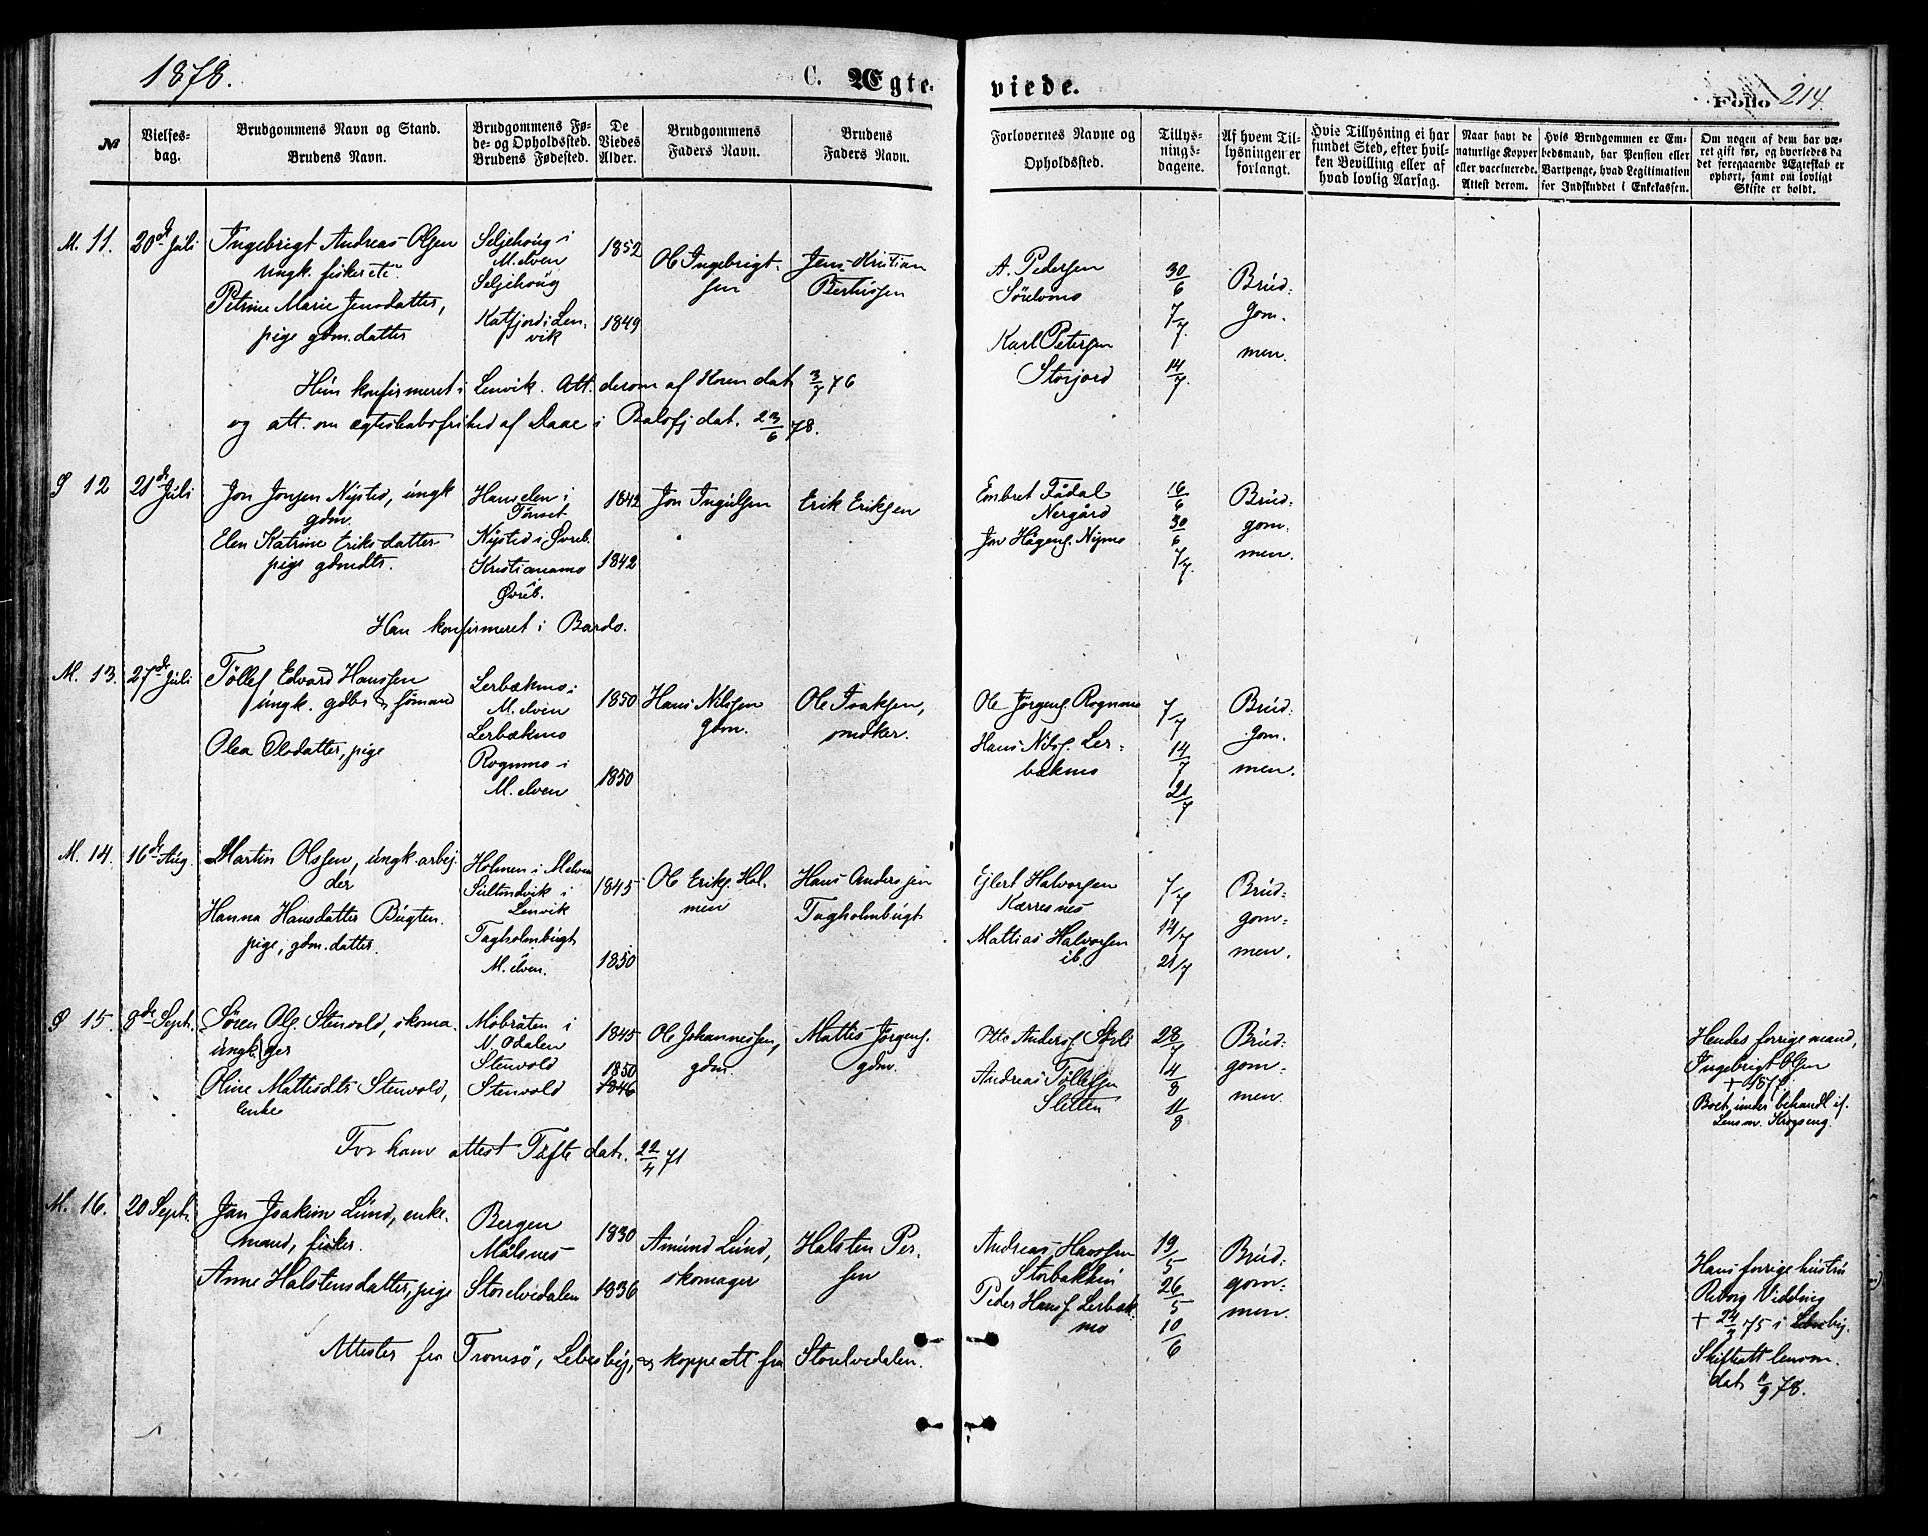 1878.
C. Ægte-
viede.
Folio 214.
№
Vielses-
dag.
Brudgommens Navn og Stand.
Brudens Navn.
Brudgommens Fø-
de- og Opholdssted.
Brudens Fødested.
De
Viedes
Alder.
Brudgommens
Faders Navn.
Brudens
Faders Navn.
Forlovernes Navne og
Opholdssted.
Tillys-
nings-
dagene.
Af hvem Til-
lysningen er
forlangt.
Hvis Tillysning ei har
fundet Sted, efter hvil-
ken Bevilling eller af
hvad lovlig Aarsag.
Naar havt de
naturlige Kopper
eller vaccinerede.
Attest derom.
Hvis Brudgommen er Em-
bedsmand, har Pension eller
Vartpenge, hvad Legitimation
for Indskuddet i Enkekassen.
Om nogen af dem har væ-
ret gift før, og hvorledes da
det foregaaende Ægteskab er
ophørt, samt om lovligt
Skifte er holdt.
M. 11.
20de Juli
Ingebrigt Andreas Olsen
ungk. fisker etc.
Petrine Marie Jensdatter,
pige gdm.datter
Seljehoug i
M.elven
Seljehoug
Katfjord i Len-
vik
1852
1849
Ole Ingebrigt-
sen
Jens Kristian
Berhussen
A. Pedersen
Sörelvmo
Karl Petersen
Storjord
30/6
7/7.
14/7.
Brud-
gom-
men.
Hun konfirmeret i Lenvik. Att. derom af Koren dat. 3/7 76
og att. om ægteskabsfrihed af Daae i Balsfj dat. 23/6 78.
S 12
21de Juli
Jon Jonsen Nysted, ungk
gdm.
Elen Katrine Eriksdatter
pige gdmdtr.
Hauselen i
Tönset
Nysted i Øvreb.
Kristianamo
Øvreb.
1842
1842
Jon Ingulsen
Erik Eriksen
Embret Fådal
Nergård
Jon Hågens. Nymo
16/6
30/6
7/7
Brud-
gom-
men.
Han konfirmeret i Bardo.
M. 13.
27de Juli
Töllef Edvard Hanssen
ungk. gdbr & sömand
Olea Olsdatter, pige
Lerbækmo i
M. elven
Lerbækmo
Rognmo i
M. elven
1850
1850
Hans Nilssen
gdm.
Ole Isaksen,
snedker.
Ole Jörgens. Rognmo
Hans Nils. Ler-
bækmo
7/7
14/7
21/7
Brud-
gom.
men.
M. 14.
16de Aug.
Martin Olssen, ungk. arbej-
der
Hanna Hansdatter Bugten.
pige, gdm.datter.
Holmen i Melven
Sultindvik i
Lenvik
Tagholmbugt
M. elven.
1845
1850
Ole Eriks. Hol-
men
Hans Anderssen
Tagholmbugt
Ejlert Halvorsen
Kærresnes
Mattias Halvorsen
ib.
7/7
14/7
21/7
Brud-
gom-
men.
S 15.
8de Sept.
Sören Ols. Stenvold, skoma-
ungk. ger
Oline Mattisdtr Stenvold,
enke
Mobråten i
N. Odalen
Stenvold
Stenvold
1845
1850
1846
Ole Johannessen,
gdm.
Mattis Jörgens.
gdm.
Otto Anders. Sörli
Andreas Töllefsen
Sletten
28/7
4/8
11/8
Brud-
gom-
men.
Hendes forrige mand,
Ingebrigt Olsen
+ 187.
Boet under behandl if.
Lensm. Krogseng.
For ham attest Tofte dat. 22/4 71
M. 16.
20 Sept.
Jan Joakim Lund, enke-
mand, fisker.
Anne Halstensdatter, pige
Bergen
Målsnes
Storelvedalen
1830
1836
Amund Lund,
skomager
Halsten Per-
sen
Andreas Hanssen
Storbakken
Peder Hans. Lerbæk
mo
19/5
26/5
10/6
Brud-
gom-
men.
Hans forrige hustru
Riborg Vidding
+ 24/3 75 i Lebesby.
Skifteatt lensm.
dat. 11/9 78.
Attester fra Tromsö, Lebesby, og koppeatt fra Storelvedalen.